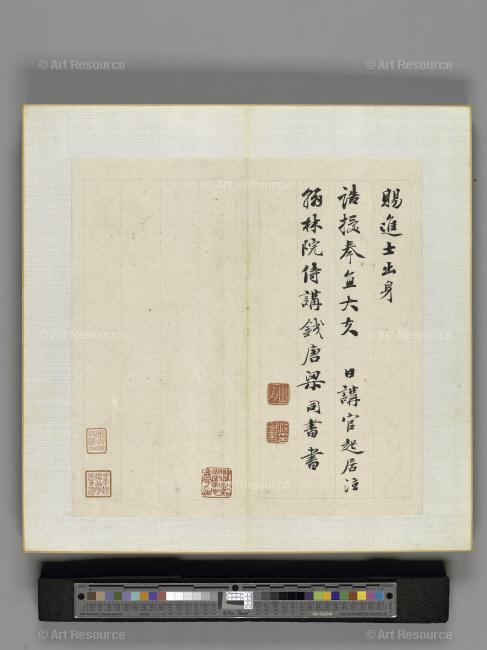 賜進士出身
誥授奉直大夫　日講官起居注
翰林院侍講錢唐梁同書書
© Art Resource
© Art Resource
© Art Resource
© Art Resource
© Art Resource
© Art Resource
© Art Resource
© Art Resource
© Art Resource